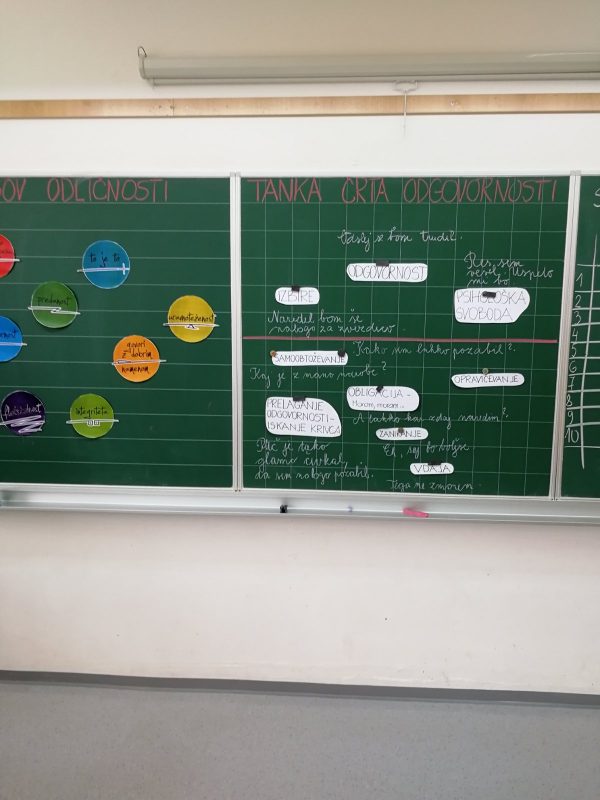 OV ODLIČNOSTI
to je to
predanost
uravnoteženost
govori
z dobrim
namenom
integriteta
TANKA ČRTA ODGOVORNOSTI
Odslej se bom trudil.
ODGOVORNOST
Res, sem
vesel. Uspelo
mi bo.
IZBIRE
PSIHOLOŠKA
SVOBODA
Naredil bom še
nalogo za zvezdico.
SAMOOBTOŽEVANJE
Kako sem lahko pozabil?
Kaj je z mano narobe?
OPRAVIČEVANJE
OBLIGACIJA -
Moram, moram...
PRELAGANJE
ODGOVORNOSTI-
ISKANJE KRIVCA
A lahko kar zdaj naredim?
ZANIKANJE
Eh, saj bo bolje.
Ptič je tako
glasno čivkal,
da sem nalogo pozabil.
VDAJA
Tega ne zmorem.
S
1
2
3
4
5
6
7
8
9
10